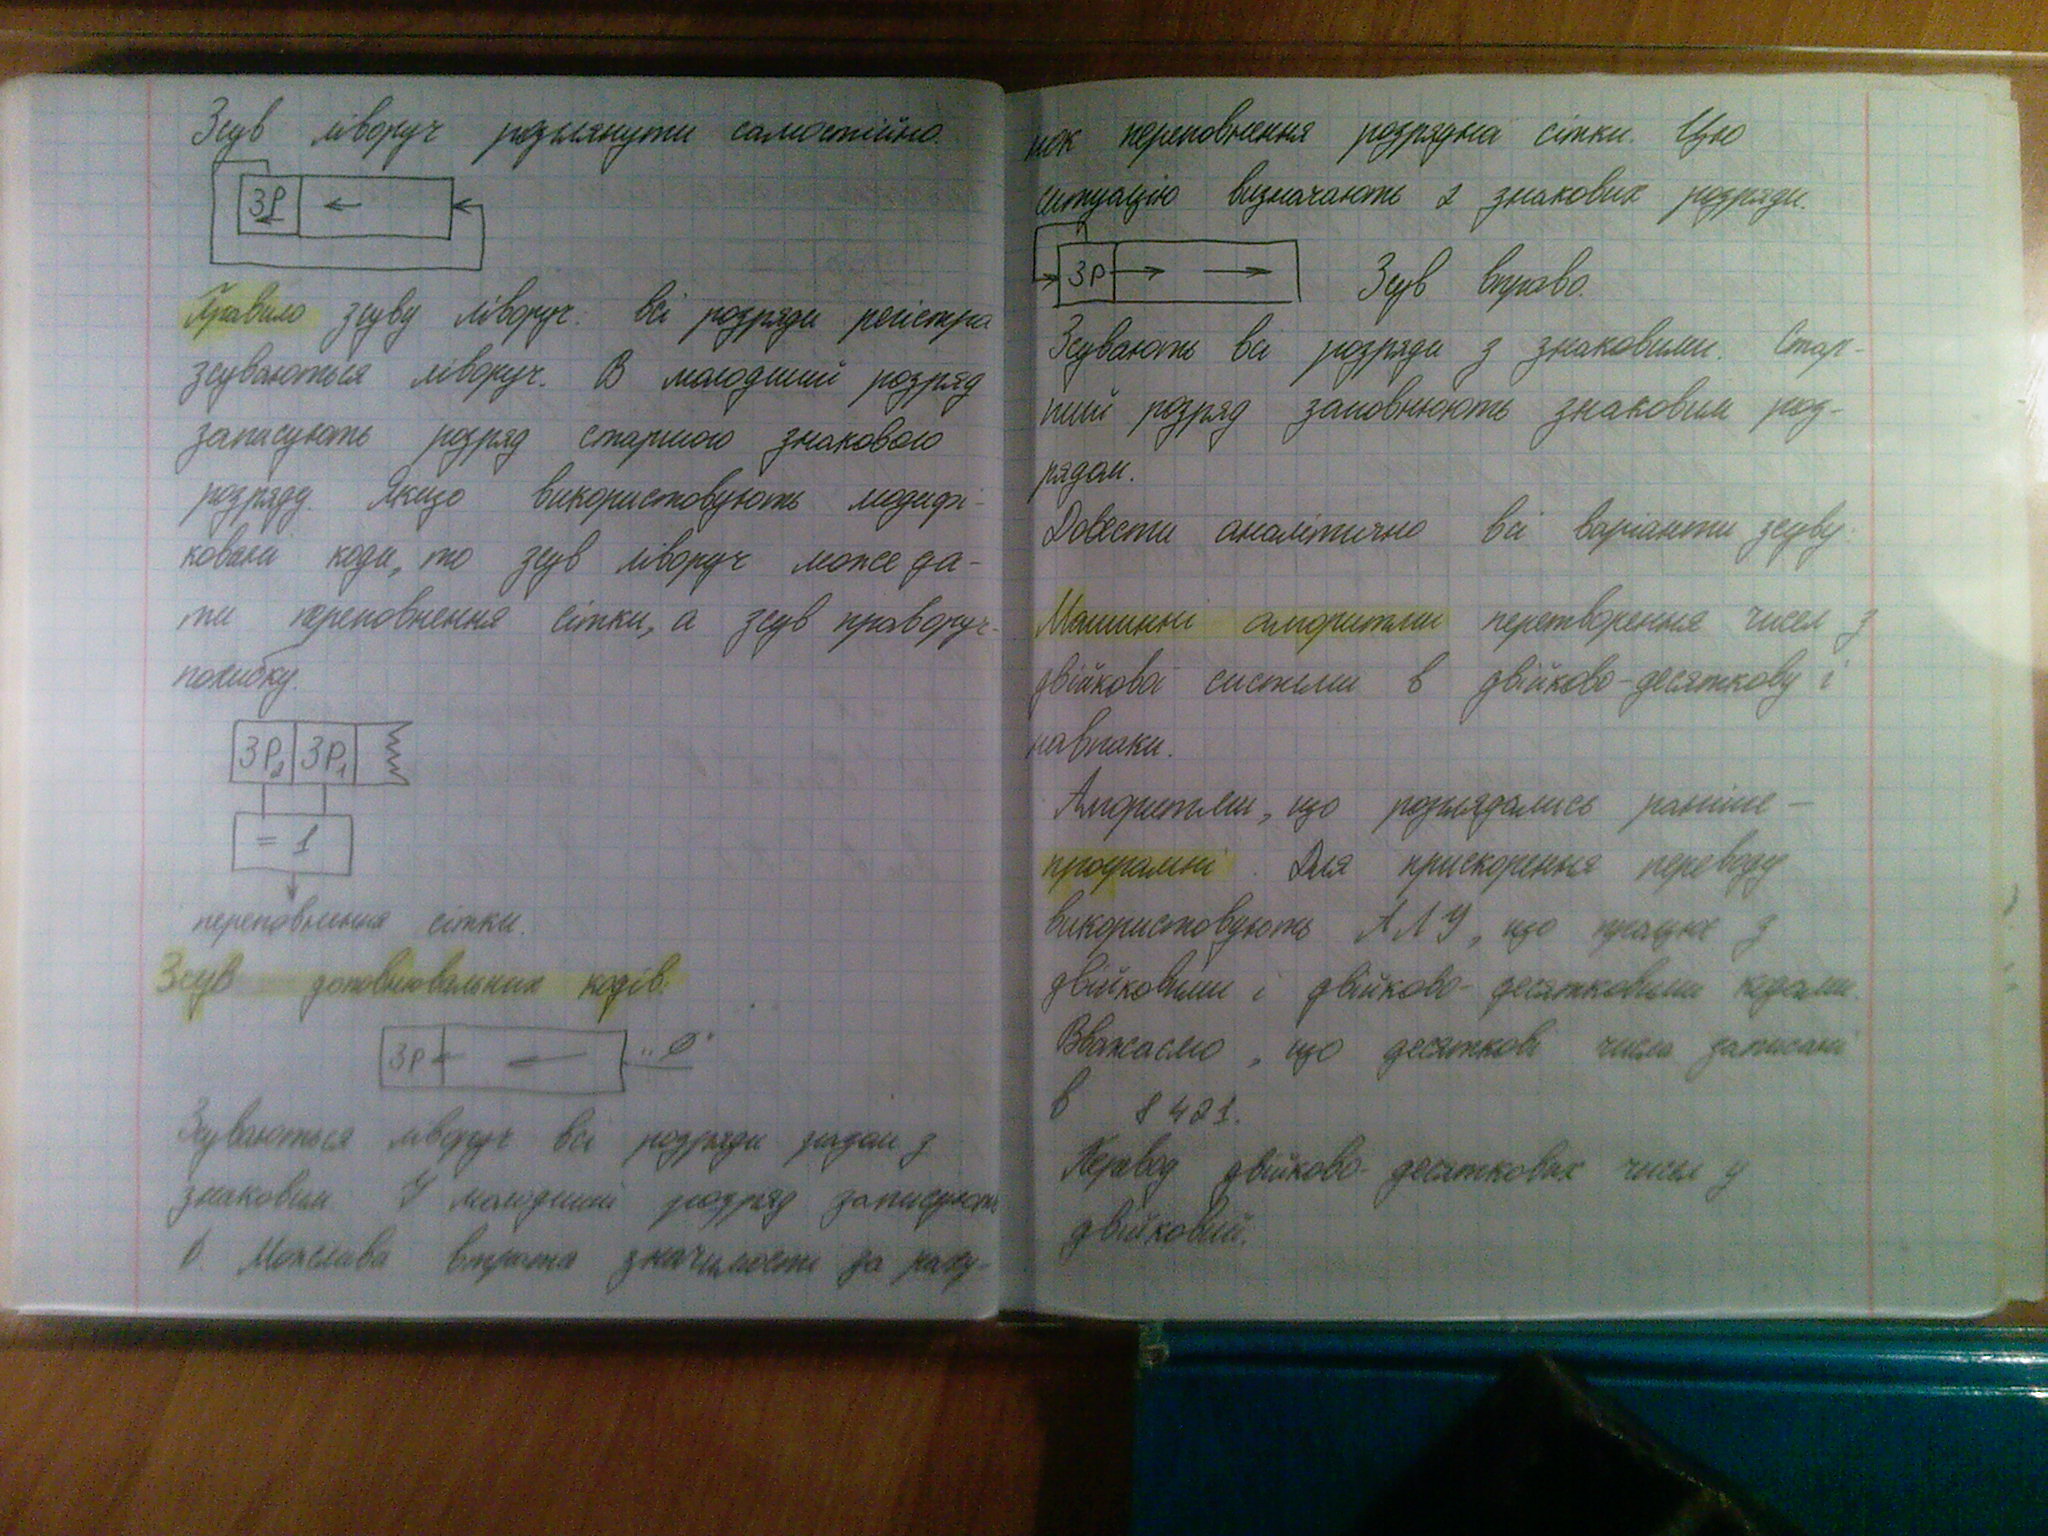 Зсув ліворуч розглянути самостійно.
ЗР
Правило зсуву ліворуч: всі розряди регістра
зсуваються ліворуч. В молодший розряд
записують розряд старшого знакового
розряду. Якщо використовують модифі-
ковані коди, то зсув ліворуч може да-
ти переповнення сітки, а зсув праворуч-
похибку.
ЗР2 ЗР1
= 1
переповнення сітки.
Зсув доповнювальних кодів.
ЗР "0"
Зсуваються ліворуч всі розряди разом з
знаковим. У молодший розряд записують
0. Можлива втрата значимості за раху-
нок переповнення розрядна сітки. Цю
ситуацію визначають 2 знакових розряди.
ЗР Зсув вправо.
Зсувають всі розряди з знаковими. Стар-
ший розряд заповнюють знаковим роз-
рядом.
Довести аналітично всі варіанти зсуву.
Машинні алгоритми перетворення чисел з
двійкової системи в двійково-десяткову і
навпаки.
Алгоритми, що розглядались раніше -
програмні. Для прискорення переводу
використовують АЛУ, що працює з
двійковими і двійково-десятковими кодами.
Вважаємо, що десяткові числа записані
в 8421.
Перевод двійково-десяткових чисел у
двійковий.